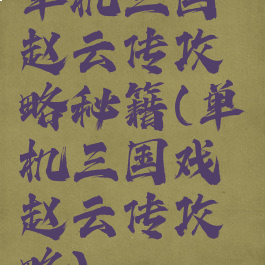 单机三国
赵云传攻
略秘籍(单
机三国戏
赵云传攻
略)